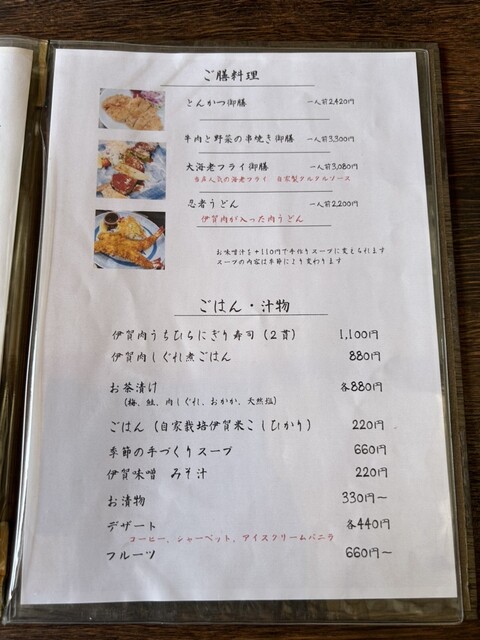 ご膳料理
とんかつ御膳 一人前2,420円
牛肉と野菜の串焼き御膳 一人前3,300円
大海老フライ御膳 一人前3,080円
当店人気の海老フライ、自家製タルタルソース
忍者うどん 一人前2,200円
伊賀肉が入った肉うどん
お味噌汁を+110円で手作りスープに変えられます
スープの内容は季節により変わります
ごはん・汁物
伊賀肉うちひらにぎり寿司(2貫) 1,100円
伊賀肉しぐれ煮ごはん 880円
お茶漬け 各880円
(梅、鮭、肉しぐれ、おかか、天然塩)
ごはん(自家栽培伊賀米こしひかり) 220円
季節の手づくりスープ 660円
伊賀味噌 みそ汁 220円
お漬物 330円~
デザート 各440円
コーヒー、シャーベット、アイスクリームバニラ
フルーツ 660円~